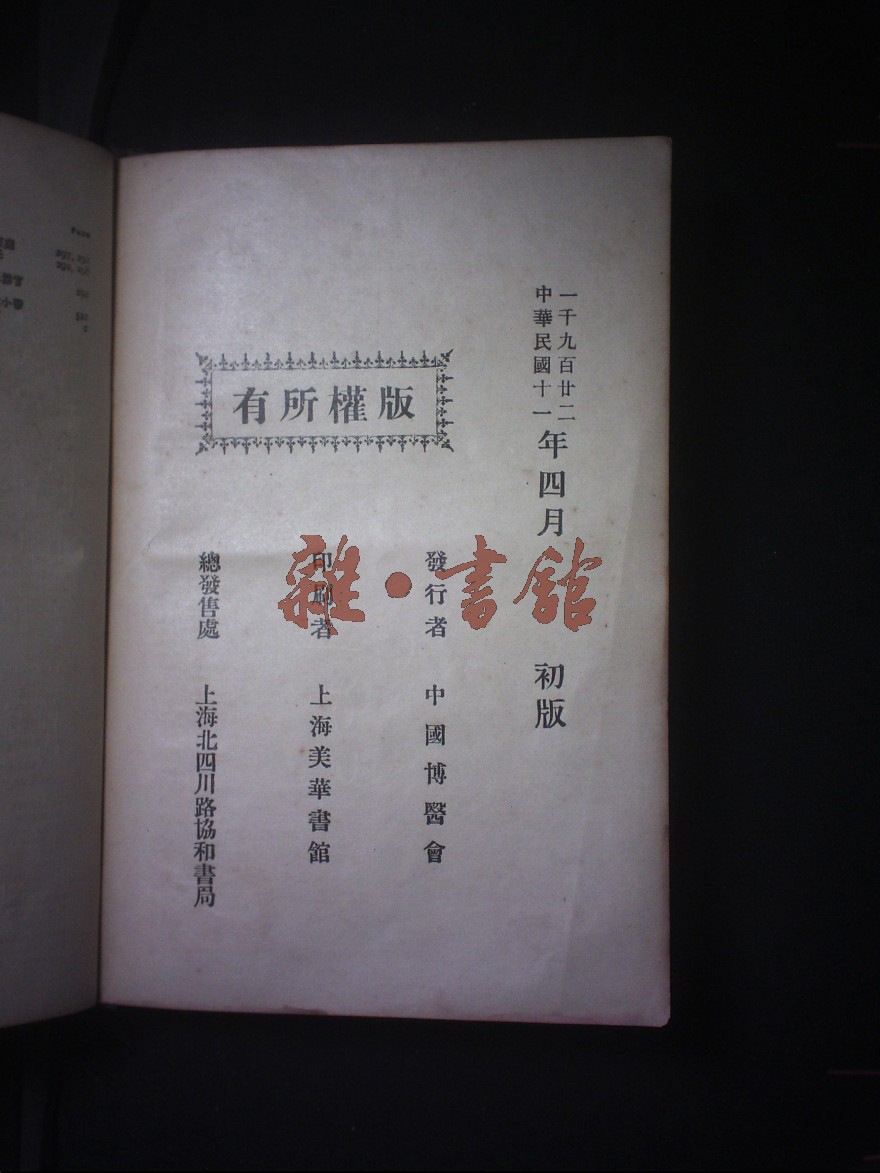 一千九百廿二
中華民國十一
年四月 初版
版權所有
發行者 中國博醫會
印刷者 上海美華書館
總發售處 上海北四川路協和書局
雜·書館